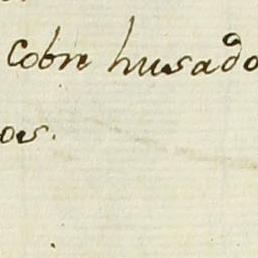 cobre husado
os.